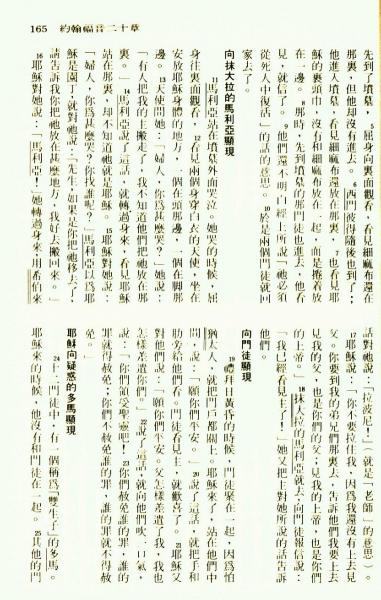 165 約翰福音二十章
先到了墳墓，5 屈身向裏面觀看，看見細麻布還在
那裏，但他卻沒有進去。6 西門彼得隨後也到了；
他進入墳墓，看見細麻布還放在那裏，7 也看見耶
穌的裹頭巾，沒有和細麻布放在一起，而是捲着放
在一邊。8 那時，先到墳墓的那門徒也進去，他看
見，就信了。9 他們還不明白經上所說「他必須
從死人中復活」的話的意思。10 於是兩個門徒就回
家去了。
向抹大拉的馬利亞顯現
11 馬利亞站在墳墓外面哭泣。她哭的時候，屈
身往裏面觀看，12 看見兩個身穿白衣的天使，坐在
安放耶穌身體的地方，一個在頭那邊，一個在腳那
邊。13 天使問她：「婦人，你爲甚麼哭？」她說：
「有人把我的主搬走了，我不知道他們把祂放在那
裏。」14 馬利亞說了這話，就轉過身來，看見耶穌
站在那裏，卻不知道祂就是耶穌。15 耶穌對她說：
「婦人，你爲甚麼哭？你找誰呢？」馬利亞以爲耶
穌是園丁，就對祂說：「先生，如果是你把祂移去了，
請告訴我你把祂放在甚麼地方，我好去搬回來。」
16 耶穌對她說：「馬利亞！」她轉過身來，用希伯來
話對祂說：「拉波尼！」（就是「老師」的意思）。
17 耶穌說：「你不要拉住我，因爲我還沒有上去見
父。你要到我的弟兄們那裏去，告訴他們我要上去
見我的父，也是你們的父；見我的上帝，也是你們
的上帝。」18 抹大拉的馬利亞就去，向門徒報信說：
「我已經看見主了！」她又把主對她所說的話告訴
他們。
向門徒顯現
19 禮拜日黃昏的時候，門徒聚在一起，因爲怕
猶太人，就把門戶都關上。耶穌來了，站在他們中
間，說：「願你們平安。」20 說了這話，就把手和
肋旁給他們看。門徒看見主，就歡喜了。21 耶穌又
對他們說：「願你們平安。父怎樣差遣了我，我也
怎樣差遣你們。」22 說了這話，就向他們吹一口氣，
說：「你們領受聖靈吧！23 你們赦免誰的罪，誰的
罪就得赦免；你們不赦免誰的罪，誰的罪就不得赦
免。」
耶穌向疑惑的多馬顯現
24 十二門徒中，有一個稱爲「雙生子」的多馬。
耶穌來的時候，他沒有和門徒在一起。25 其他的門